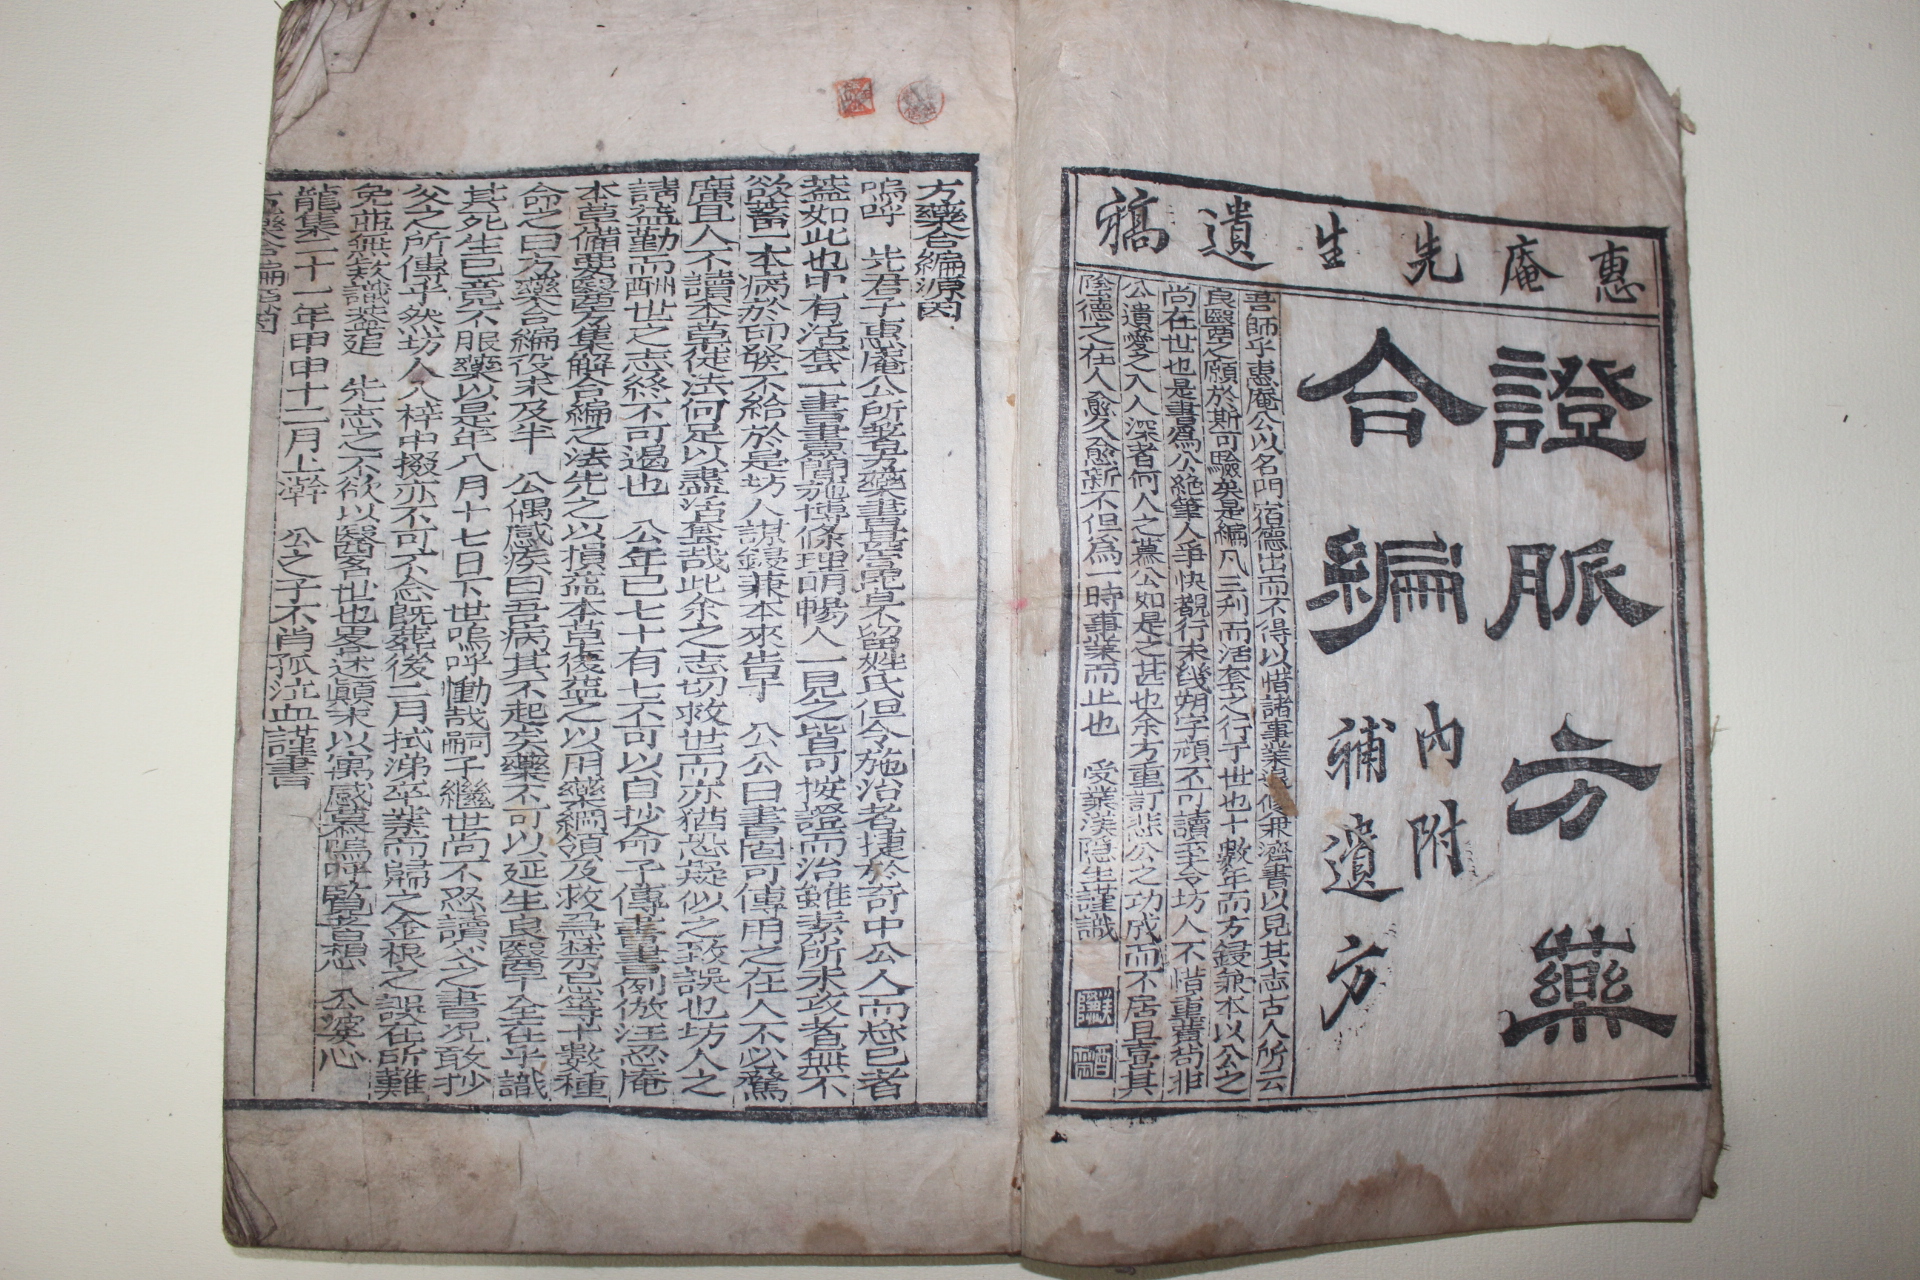 惠庵先生遺稿
證脈方藥
合編
內附
補遺方
吾師乎惠庵公以名門宿德出而不得以惜諸事業規修兼濟書以見其志古人所云
良醫之願於斯可驗矣是編凡三刋而活套之行于世也十數年而方錄兼本以公之
尚在世也是書爲公絶筆人爭快覩行未幾朔字頑不可讀至今坊人不惜重貲苟非
公遺愛之入人深者何人之慕公如是之甚也余方重訂悲公之功成而不居且喜其
陰德之在人愈久愈新不但爲一時事業而止也 受業漢隱生謹識
方藥合編源因
嗚呼 先君子惠庵公所著方藥書甚富唾草不留姓氏但令施治者捷於奇中公人而惣已者
蓋如此也中有活套一書書簡施博條理明暢人一見之皆可按證而治雖素所未攻者無不
欲蓄一本病於印發不給於是坊人謀鋟兼本來告于 公公曰書固可傳用之在人不必騖
廣且人不讀本草徒法何足以盡活套哉此余之志切救世而亦猶恐疑似之致誤也坊人之
請益勤而酬世之志終不可遏也 公年已七十有七不可以自抄命子傳書書例倣汪忍庵
本草備要醫方集解合編之法先之以損益本草後益之以用藥綱領及救急禁忌等十數種
命之曰方藥合編役未及半 公偶感疾曰吾病其不起矣藥不可以延生良醫乎全在乎識
其死生已竟不服藥以是年八月十七日下世嗚呼慟哉嗣子繼世尚不忍讀公之書况敢抄
父之所傳乎然坊人入梓中掇亦不可不念旣葬後二月拭涕卒業而歸之金根之誤在所難
免並無款識蓋追 先志之不欲以醫名世也畧述顚末以寓感慕嗚呼覽者想 公婆心
龍集二十一年甲申十二月上澣 公之子不肖孤泣血謹書
方藥合編源因